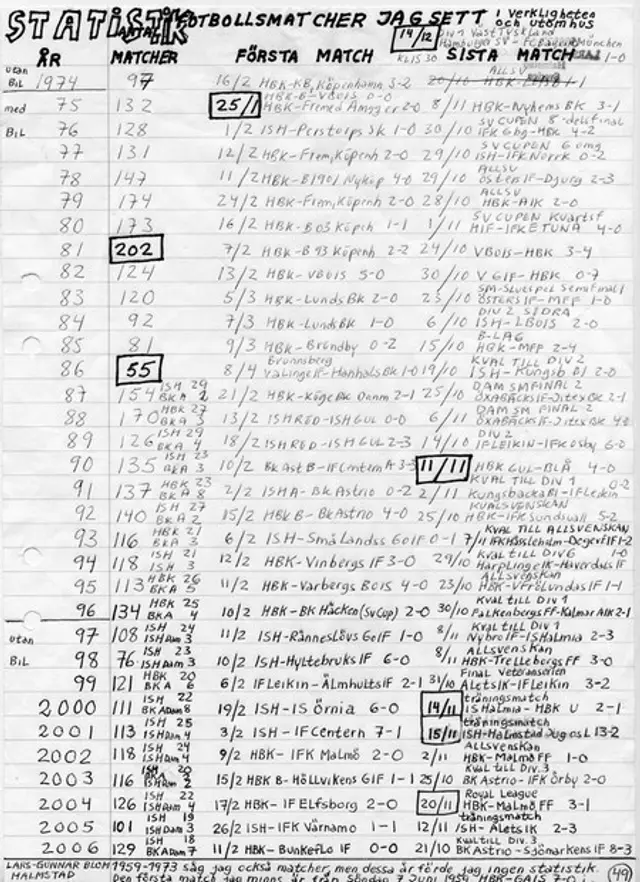 STATISTIK FOTBOLLSMATCHER JAG SETT i Verkligheten och utomhus
14/12 Div 1 Västtyskland
Hamburger SV - FC Bayern München
Kl 15 30 1-0
ÅR ANTAL MATCHER FÖRSTA MATCH SISTA MATCH
utan BIL 1974 97 16/2 HBK-KB, Köpenhamn 3-2 ALLSV
HBK-B-VBOIS 0-0
med BIL 75 132 25/1 HBK-Fremad Amager 2-0 8/11 HBK-Nyhems BK 3-1
76 128 1/2 ISH-Perstorps SK 1-0 30/10 SV CUPEN 8-delsfinal IFK Gbg-HBK 4-2
77 131 12/2 HBK-Frem, Köpenh 2-0 29/10 SV CUPEN 6 omg ISH-IFK Norrk 0-2
78 147 11/2 HBK-B1901 Nyköp 4-0 29/10 ALLSV Östers IF-Djurg 2-3
79 174 24/2 HBK-Frem, Köpenh 2-0 28/10 ALLSV HBK-AIK 2-0
80 173 16/2 HBK-B 03 Köpeh 1-1 1/11 SV CUPEN Kvartsf HIF-IFK ETUNA 4-0
81 202 7/2 HBK-B 93 Köpenh 2-2 24/10 VBOIS-HBK 3-4
82 124 13/2 HBK-VBOIS 5-0 30/10 VGIF-HBK 0-7
83 120 5/3 HBK-Lunds BK 2-0 23/10 SM-slutspel Semifinal 1 ÖSTERS IF-MFF 1-0
84 92 7/3 HBK-Lunds BK 1-0 6/10 DIV 2 SÖDRA ISH-LBOIS 2-0
85 81 9/3 HBK-Bröndby 0-2 15/10 B-LAG HBK-MFF 2-4
86 55 8/4 Brunnsberg Vallinge IF-Hanhals BK 1-0 19/10 KVAL TILL DIV 2 ISH-Kungsb BI 2-0
87 154 ISH 29 BKA 2 21/2 HBK-Köge BK Danm 2-1 25/10 DAM SM FINAL 2 ÖXABÄCKS IF-Jitex BK 2-1
88 170 HBK 27 BKA 3 13/2 ISH RÖD-ISH GUL 0-0 6/11 DAM SM FINAL 2 ÖXABÄCKS IF-Jitex BK 4-0
89 126 ISH 29 BKA 4 18/2 ISH RÖD-ISH GUL 2-3 14/10 DIV 2 IF LEIKIN-IFK Osby 6-0
90 135 ISH 23 BKA 3 10/2 BK Ast B-IF Centern A 3-3 11/11 HBK GUL-BLÅ 4-0
91 137 HBK 23 BKA 8 2/2 ISH A-BK Astrio 0-2 2/11 KVAL TILL DIV 1 Kungsbacka BI-IF Leikin 0-2
92 140 ISH 27 BKA 2 15/2 HBK B-BK Astrio 4-0 25/10 KVALSVENSKAN HBK-IFK Sundsvall 5-2
93 116 HBK 21 BKA 3 6/2 ISH-Små Landss GoIF 0-1 7/11 KVAL TILL ALLSVENSKAN IFK Hässleholm-Degerf IF 1-2
94 118 ISH 21 ISH 3 12/2 HBK-Vinbergs IF 3-0 29/10 KVAL TILL DIV 6 Harplinge IK-Haverdals IF 1-0
95 113 HBK 26 BKA 5 11/2 HBK-Varbergs BOIS 4-0 23/10 Allsvenskan HBK-V Frölunda IF 1-1
96 134 HBK 25 BKA 4 10/2 HBK-BK Häcken (Sv Cup) 2-0 30/10 Kval till Div 1 Falkenbergs FF-Kalmar AIK 2-1
utan BIL 97 108 ISH 24 ISH Dam 3 11/2 ISH-Ränneslövs GoIF 1-0 8/11 Kval till Div 1 Nybro IF-IS Halmia 2-3
98 76 ISH 23 ISH Dam 3 10/2 ISH-Hyltebruks IF 6-0 8/11 Allsvenskan HBK-Trelleborgs FF 3-0
99 121 HBK 20 BKA 6 6/2 IF Leikin-Älmhults IF 2-1 31/10 Final Veteranserien Alets IK-IF Leikin 3-2
2000 111 ISH 22 BK A Dam 8 19/2 ISH-IS Örnia 6-0 14/11 träningsmatch IS Halmia-HBK U 2-1
2001 113 ISH 25 ISH Dam 4 3/2 ISH-IF Centern 7-1 15/11 träningsmatch ISH-Halmstad Jugosl 13-2
2002 118 ISH 24 ISH Dam 4 9/2 HBK-IFK Malmö 2-0 2/11 Allsvenskan HBK-Malmö FF 1-0
2003 116 ISH 20 BKA ISH Dam 2 15/2 HBK B-Höllvikens GIF 1-1 25/10 Kval till Div. 3 BK Astrio-IFK Örby 2-0
2004 126 ISH 22 ISH Dam 4 17/2 HBK-IF Elfsborg 2-0 20/11 Royal League HBK-Malmö FF 3-1
2005 101 ISH 19 ISH Dam 3 26/2 ISH-IFK Värnamo 1-1 12/11 träningsmatch ISH-Alets IK 2-3
2006 129 ISH 18 BK A Dam 7 11/2 HBK-Bunkeflo IF 0-0 21/10 Kval till Div. 3 BK Astrio-Sjömarkens IF 8-3
LARS-GUNNAR BLOM HALMSTAD 1959-1973 såg jag också matcher, men dessa år förde jag ingen statistik.
Den första match jag minns är från Söndag 7 Juni 1959 HBK-GAIS 49